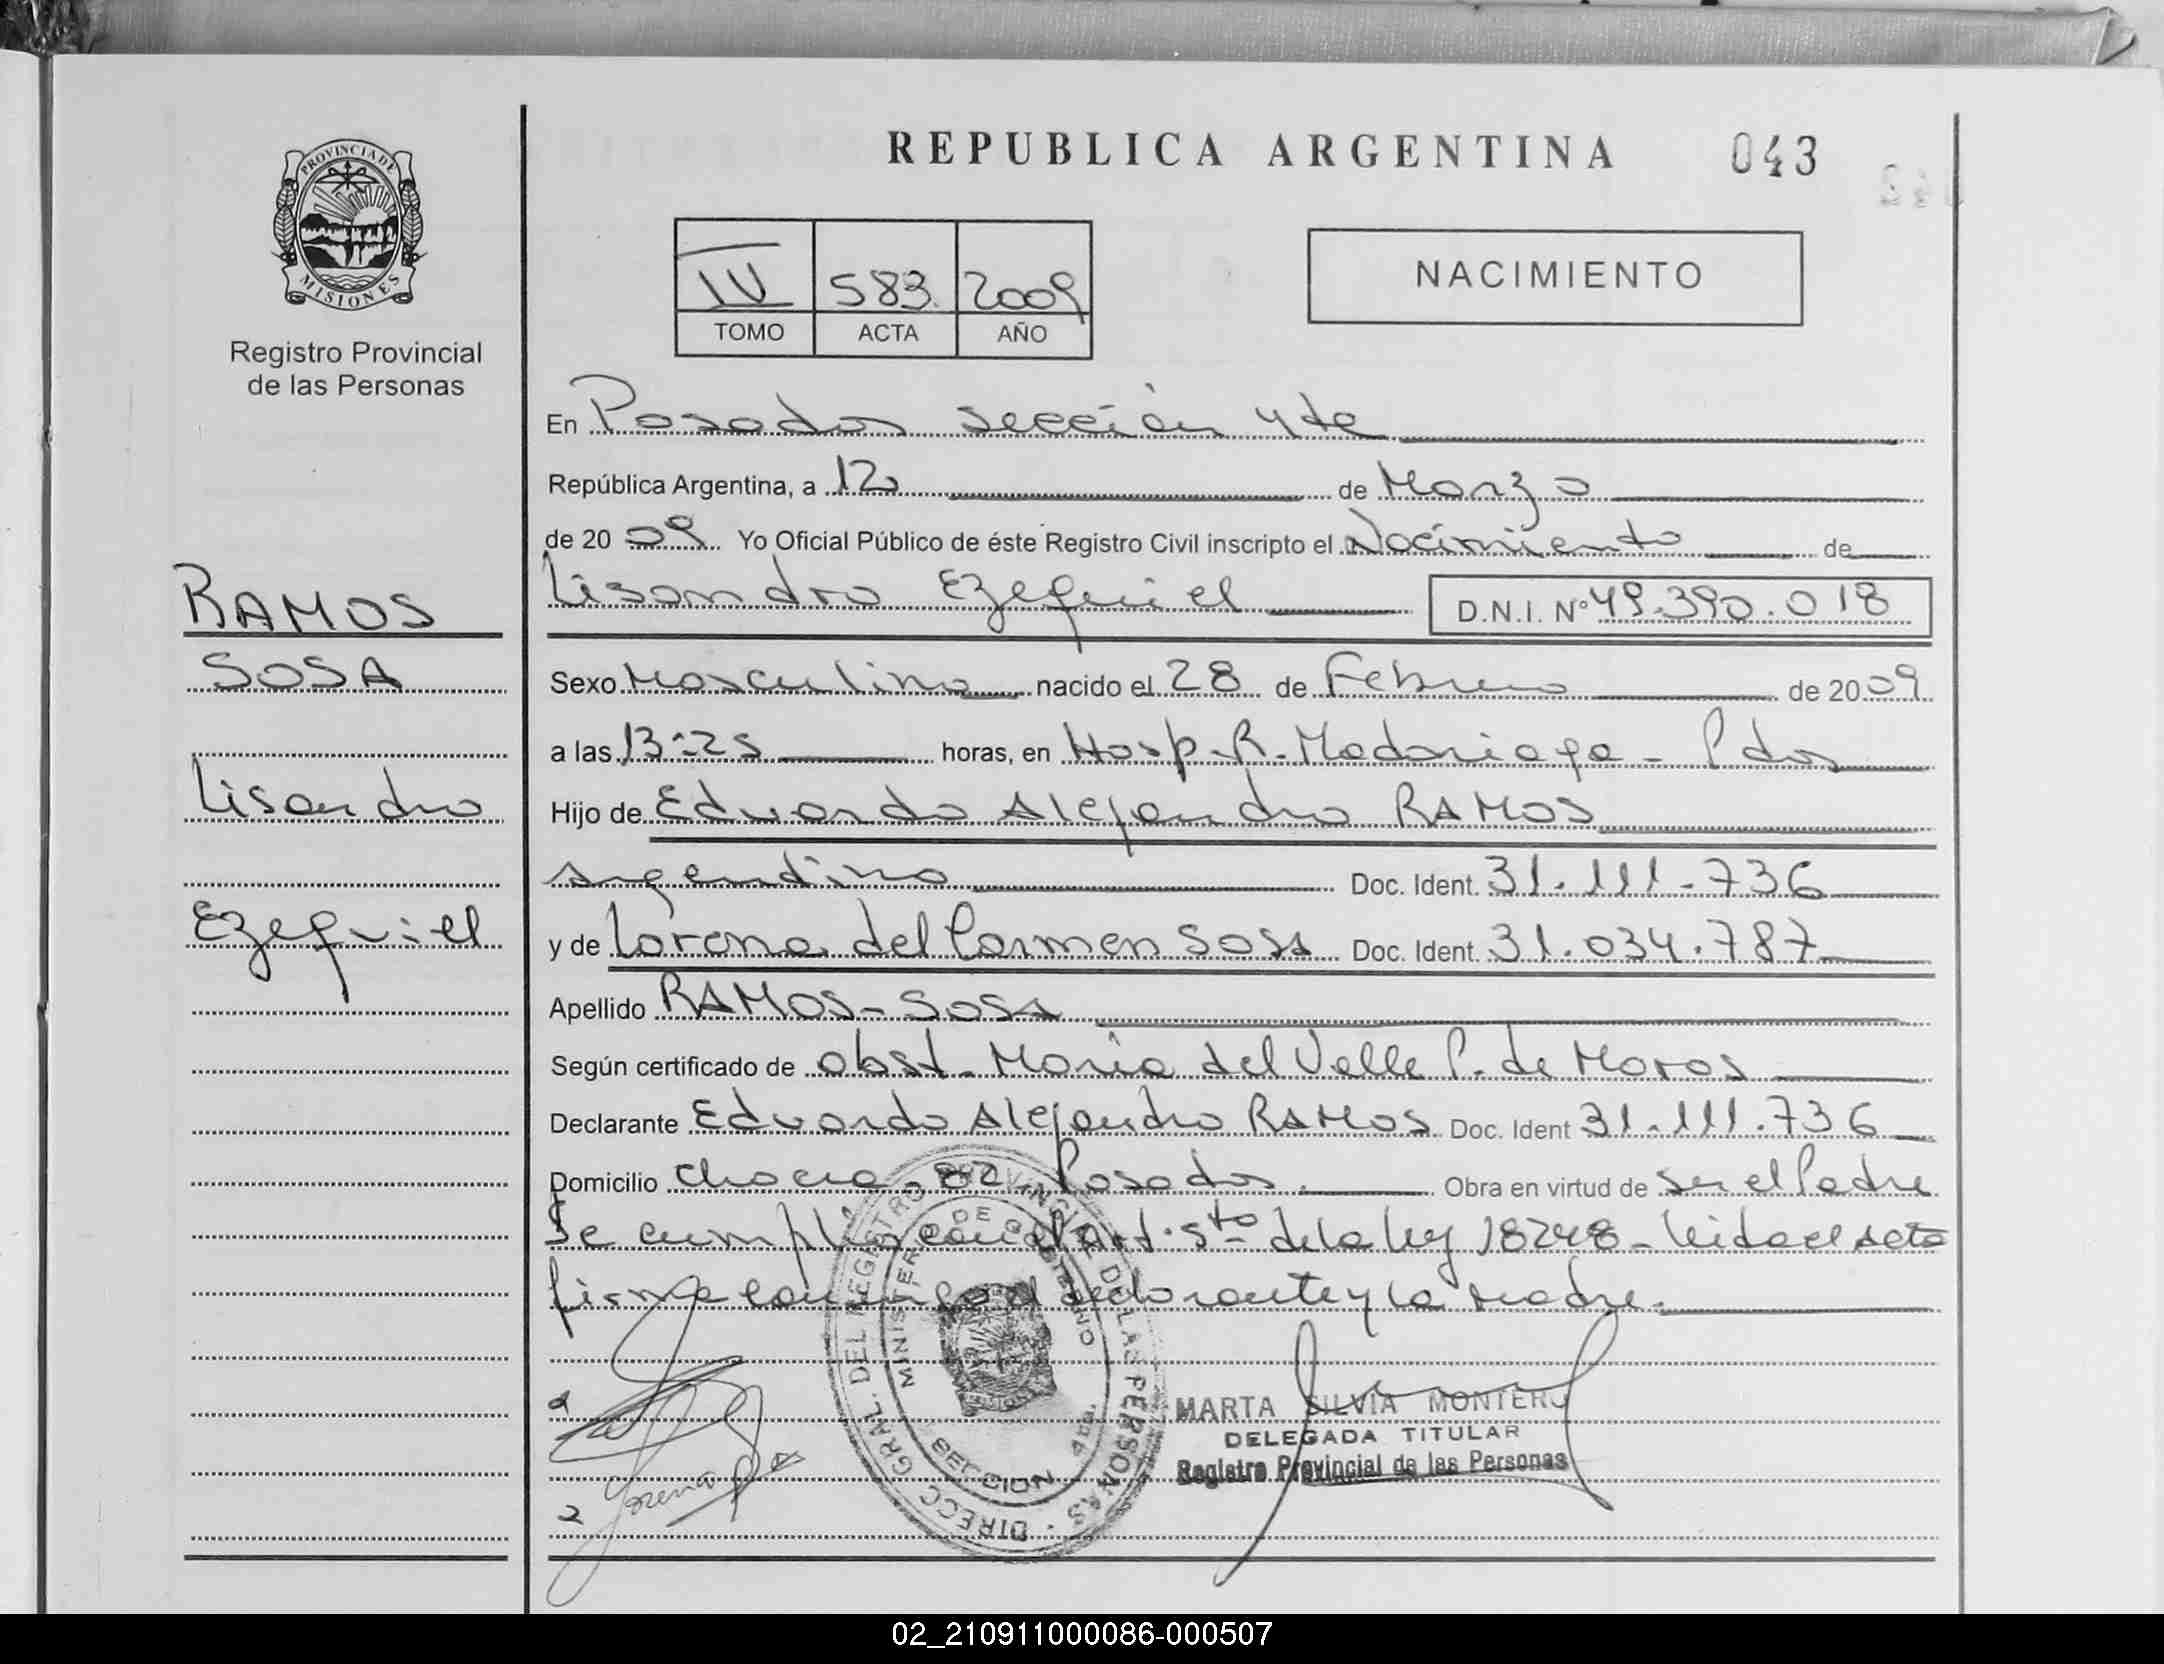 REPUBLICA ARGENTINA
043
PROVINCIA DE
MISIONES
Registro Provincial
de las Personas
IV 583. 2009
TOMO ACTA AÑO
NACIMIENTO
RAMOS
SOSA
Lisandro
Ezequiel
En Posadas sección 4ta
República Argentina, a 12 de Marzo
de 2009 Yo Oficial Público de éste Registro Civil inscripto el Nacimiento de
Lisandro Ezequiel D.N.I. Nº 49.390.018
Sexo Masculino nacido el 28 de Febrero de 2009
a las 13:25 horas, en Hosp. R. Madariaga - Pdas
Hijo de Eduardo Alejandro RAMOS
argentino Doc. Ident. 31.111.736
y de Lorena del Carmen SOSA Doc. Ident. 31.034.787
Apellido RAMOS - SOSA
Según certificado de obst. María del Valle P. de Moros
Declarante Eduardo Alejandro RAMOS Doc. Ident 31.111.736
Domicilio 82 Posadas. Obra en virtud de ser el Padre
Se cumplió con el Art. 5to de la ley 18248 - Leida el acta
firma conmigo el declarante y la madre.
1
2
DIRECC. GRAL. DEL REGISTRO PROVINCIAL DE LAS PERSONAS
MINISTERIO DE GOBIERNO
SECCION 4ta.
MARTA SILVIA MONTERO
DELEGADA TITULAR
Registro Provincial de las Personas
02_210911000086-000507